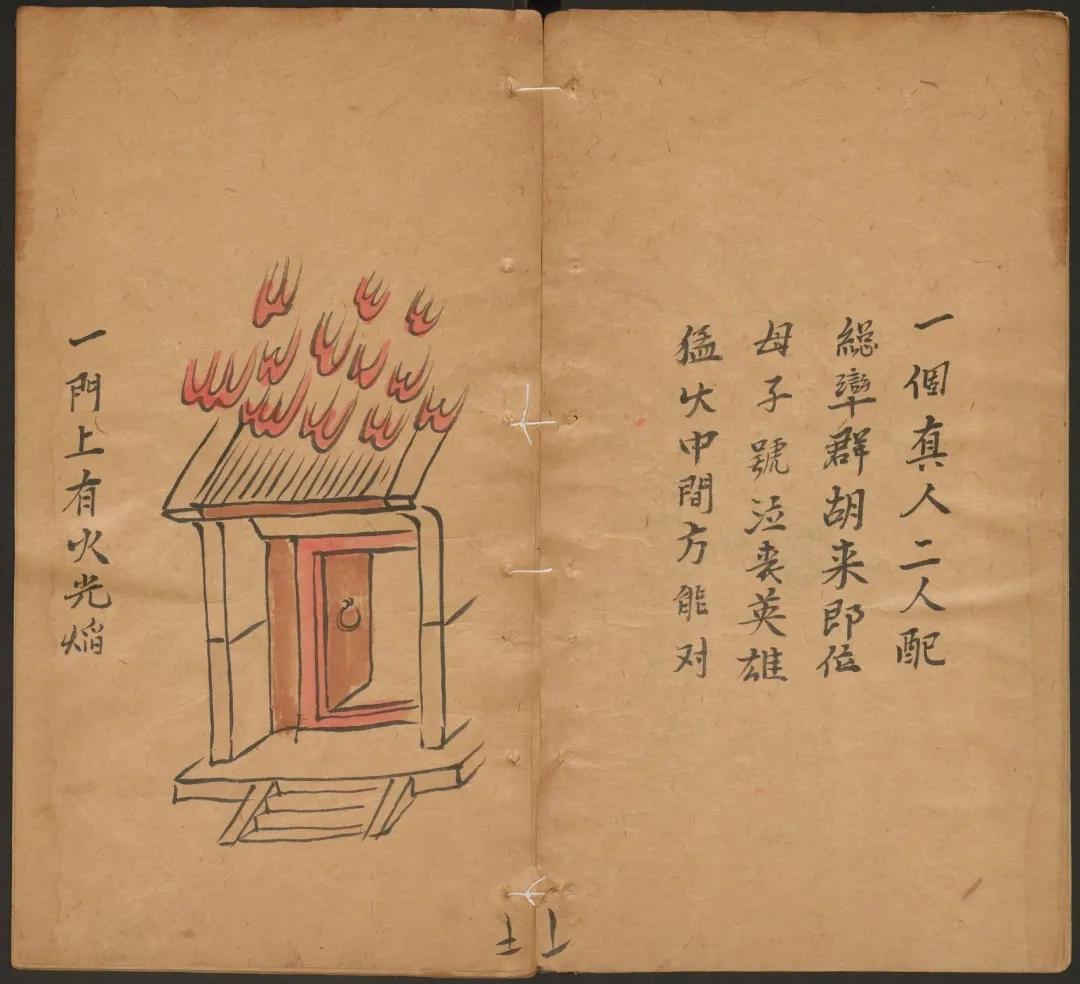 一個真人二人配
總率群胡来即位
母子號泣丧英雄
猛火中間方能对
一門上有火光焰